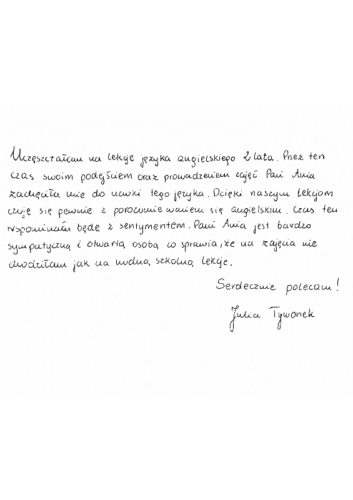 Uczęszczałam na lekcje języka angielskiego 2 lata. Przez ten
czas swoim podejściem oraz prowadzeniem zajęć Pani Ania
zachęciła mnie do nauki tego języka. Dzięki naszym lekcjom
czuję się pewnie z porozumiewaniem się angielskim. Czas ten
wspominam będę z sentymentem. Pani Ania jest bardzo
sympatyczną i otwartą osobą co sprawia, że na zajęcia nie
chodziłam jak na nudną, szkolną lekcję.
Serdecznie polecam!
Julia Tywonek